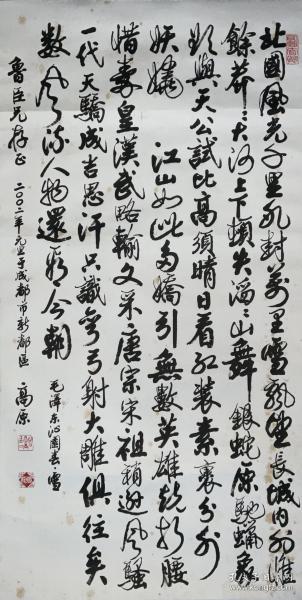 北國風光千里冰封萬里雪飄望長城内外惟
餘莽々大河上下頓失滔々山舞銀蛇原馳蠟象
欲與天公試比高須晴日看红装素裹分外
妖嬈 江山如此多嬌引無數英雄競折腰
惜秦皇漢武略輸文采唐宗宋祖稍遜風騷
一代天驕成吉思汗只識彎弓射大雕俱往矣
數風流人物還看今朝
毛澤东沁園春雪
魯臣兄存正
二〇〇二年元旦于成都市新都區
高原